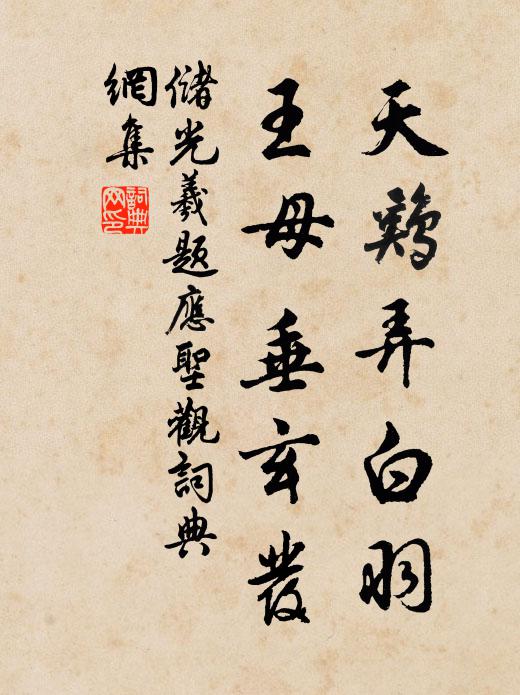 天鷄弄白羽
王母垂玄發
儲光羲題應聖觀詞典
網集
詞典網印